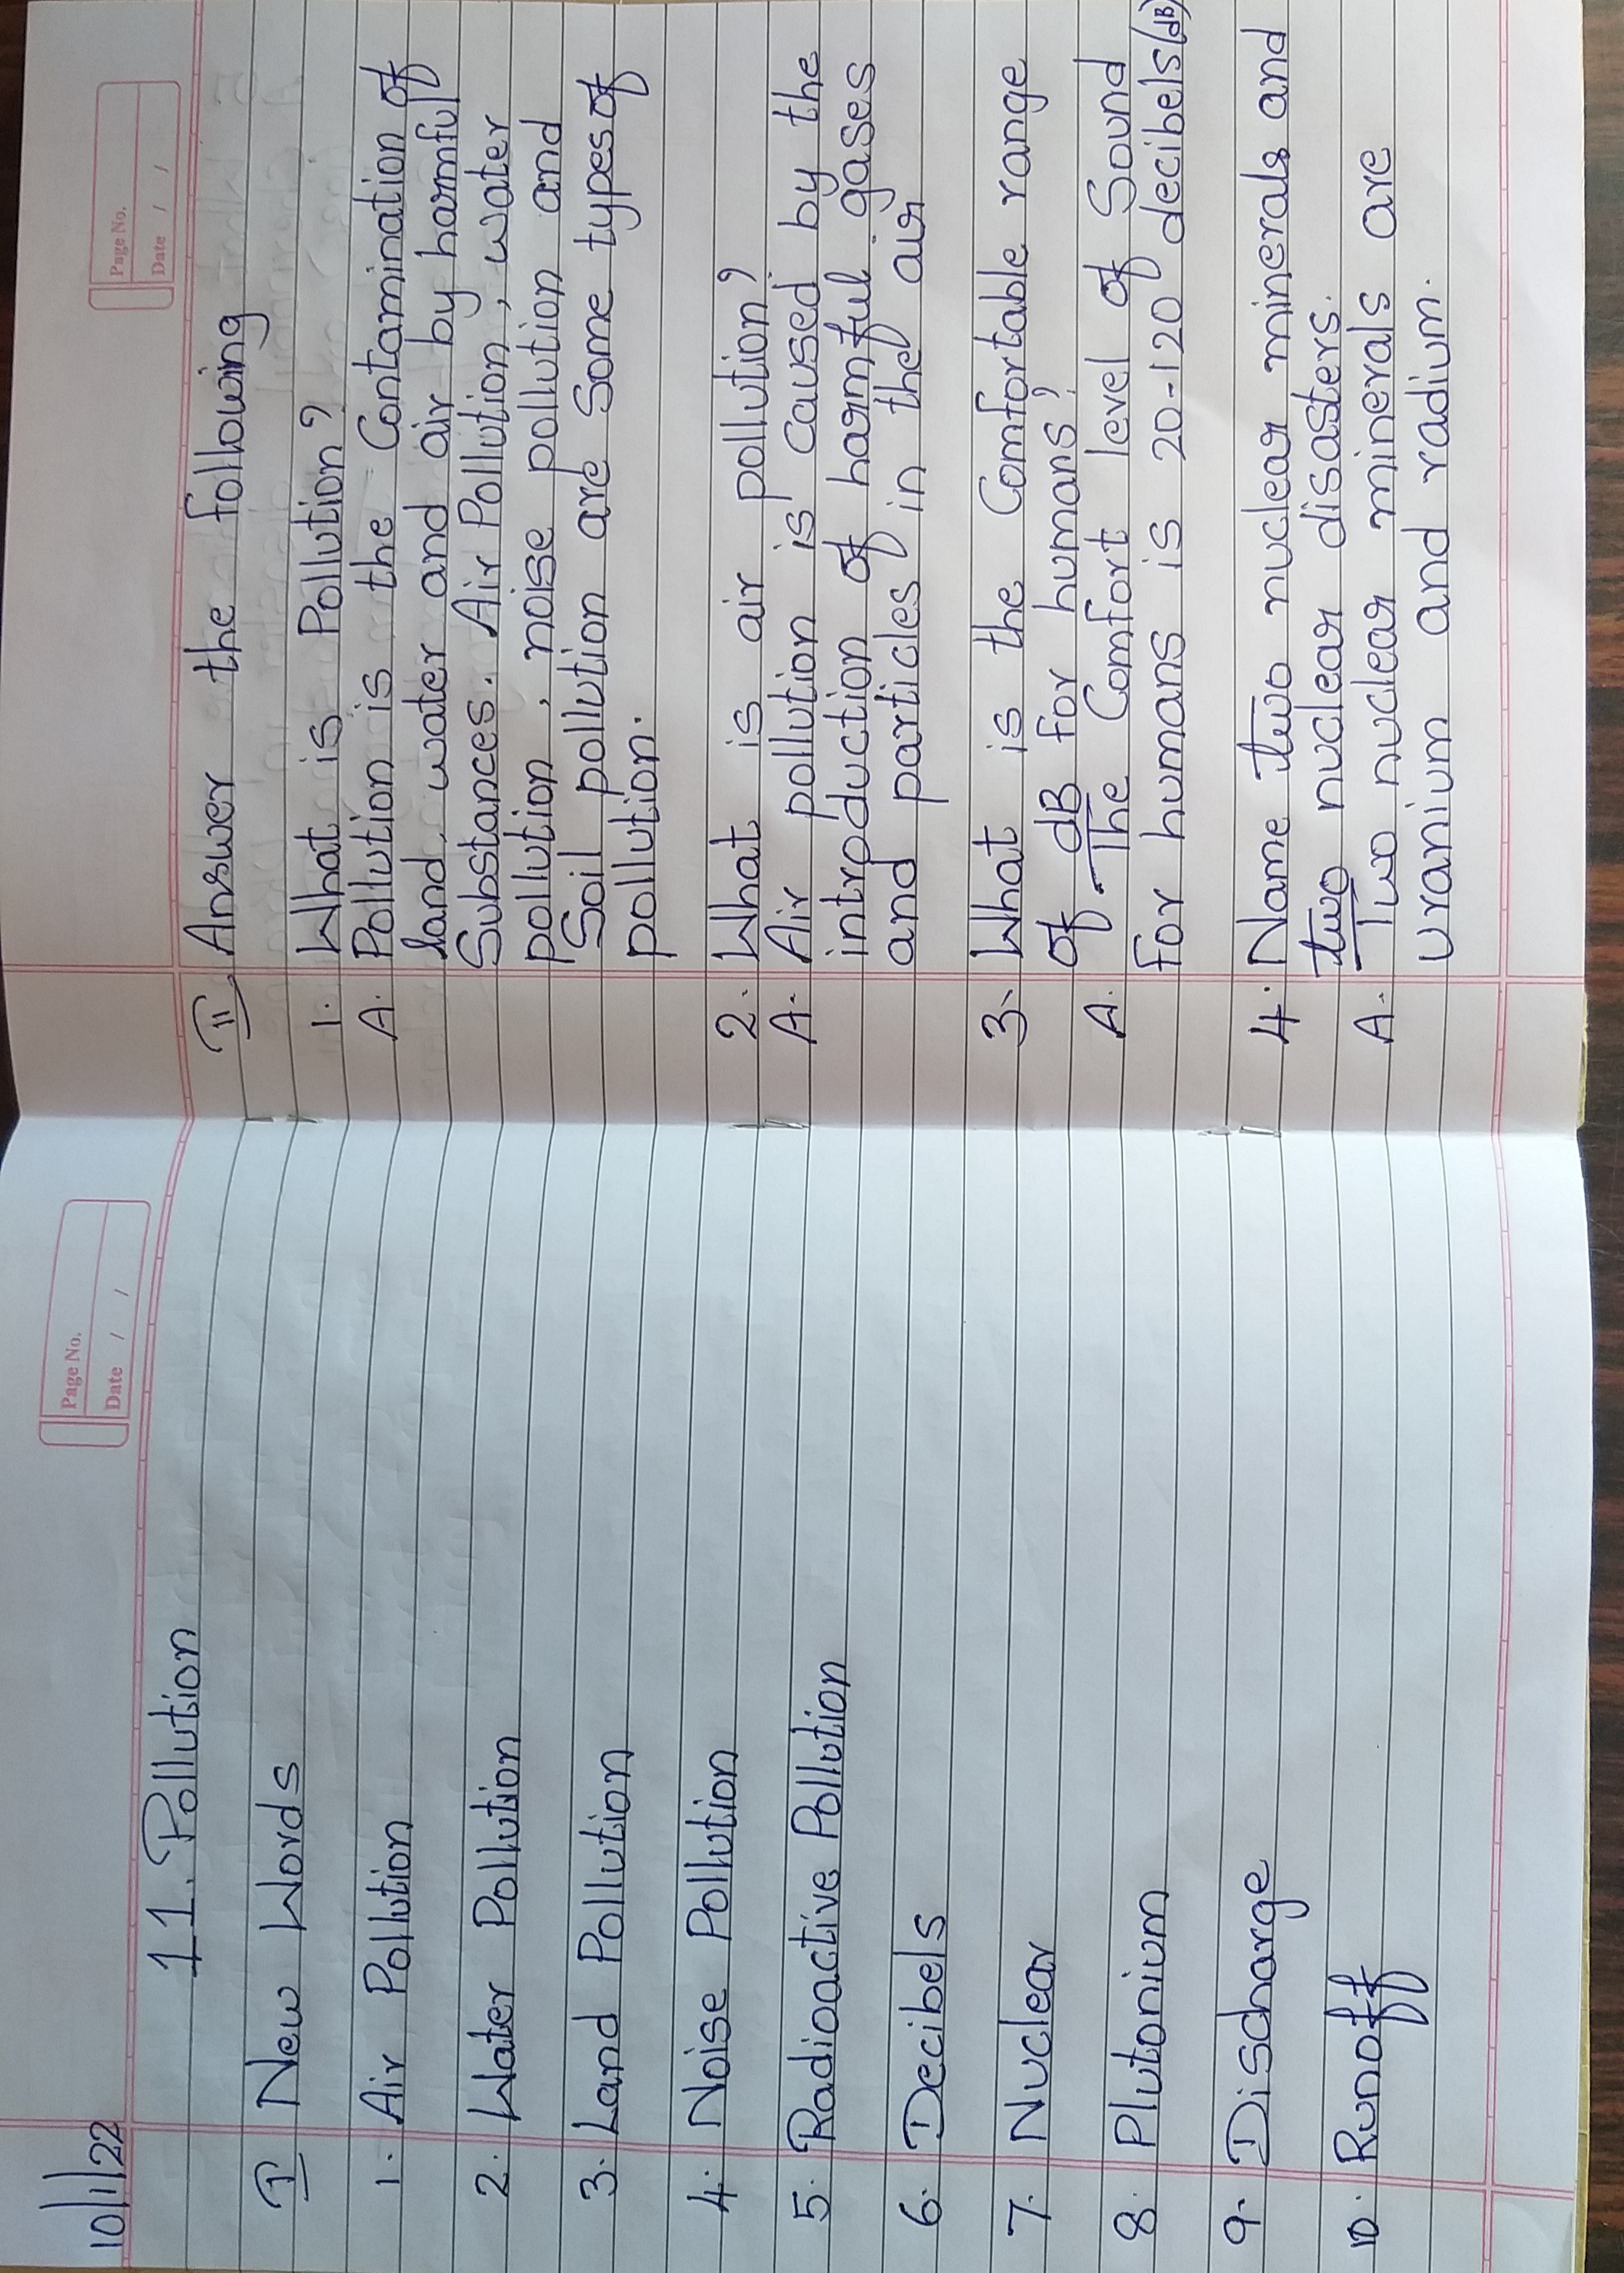 Page No.
Date / /
10/1/22
11. Pollution
I New Words
1. Air Pollution
2. Water Pollution
3. Land Pollution
4. Noise Pollution
5. Radioactive Pollution
6. Decibels
7. Nuclear
8. Plutonium
9. Discharge
10. Runoff
Page No.
Date / /
II Answer the following
1. What is Pollution?
A. Pollution is the Contamination of
land, water and air by harmful
Substances. Air Pollution, water
pollution, noise pollution and
Soil pollution are Some types of
pollution.
2. What is air pollution?
A. Air pollution is caused by the
introduction of harmful gases
and particles in the air
3. What is the Comfortable range
of dB for humans?
A. The Comfort level of Sound
for humans is 20-120 decibels(dB)
4. Name two nuclear minerals and
two nuclear disasters.
A. Two nuclear minerals are
uranium and radium.